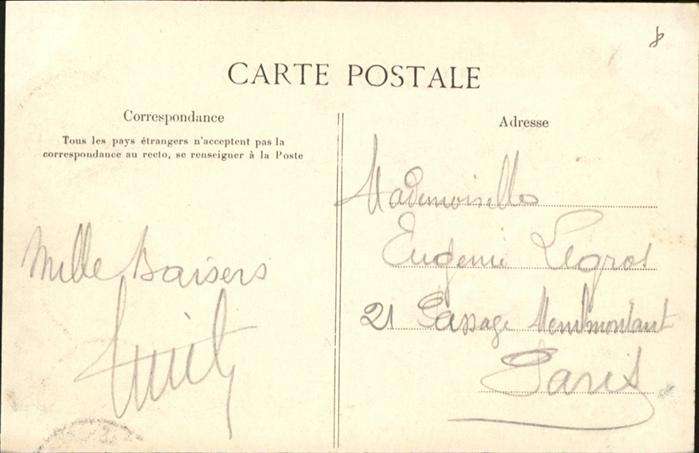 CARTE POSTALE
Correspondance
Tous les pays étrangers n'acceptent pas la
correspondance au recto, se renseigner à la Poste
Mille Baisers
Adresse
Mademoiselle
Eugenie Legros
21 Passage Menilmontant
Paris